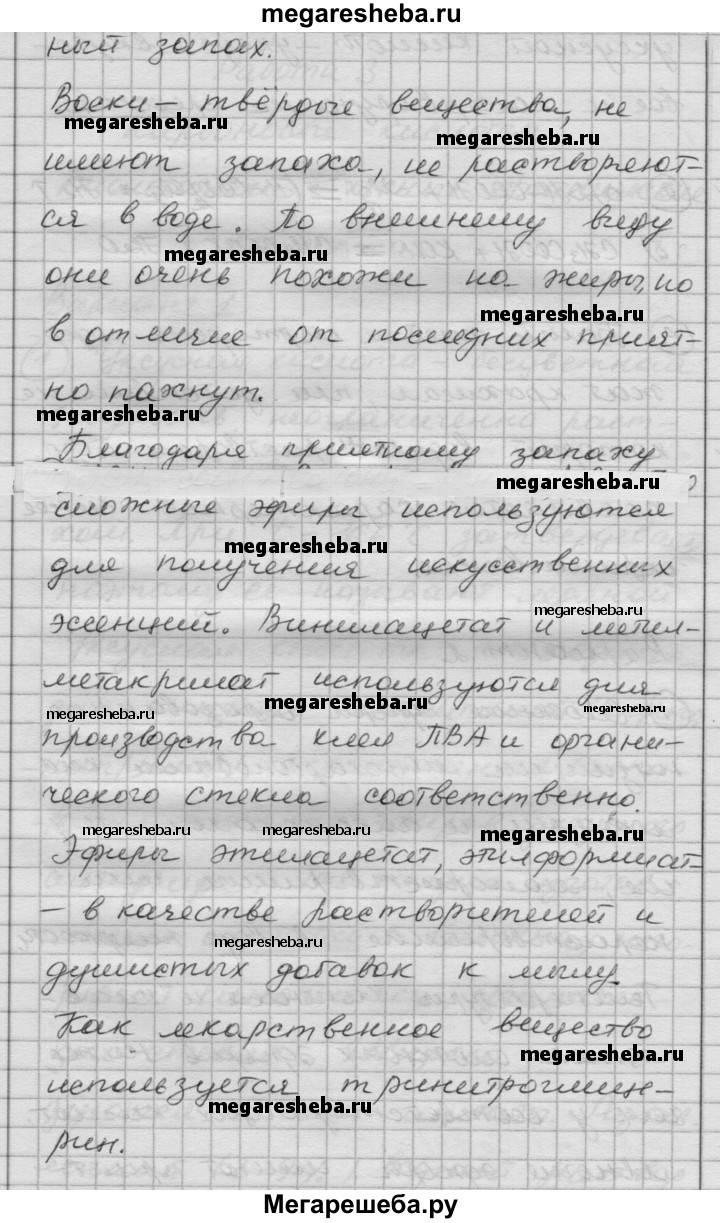 megaresheba.ru
ный запах.
Воски – твёрдые вещества, не
megaresheba.ru
megaresheba.ru
имеют запаха, не растворяют-
ся в воде. По внешнему виду
megaresheba.ru
они очень похожи на жиры, но
megaresheba.ru
в отличие от последних прият-
но пахнут.
megaresheba.ru
Благодаря приятному запаху
megaresheba.ru
сложные эфиры используются
megaresheba.ru
для получения искусственных
megaresheba.ru
эссенций. Винилацетат и метил-
метакрилат используются для
megaresheba.ru
megaresheba.ru
megaresheba.ru
производства клея ПВА и органи-
ческого стекла соответственно.
megaresheba.ru
megaresheba.ru
megaresheba.ru
Эфиры этилацетат, этилформиат-
– в качестве растворителей и
megaresheba.ru
душистых добавок к мылу.
Как лекарственное вещество
megaresheba.ru
используется тринитроглице-
megaresheba.ru
рин.
Мегарешеба.ру